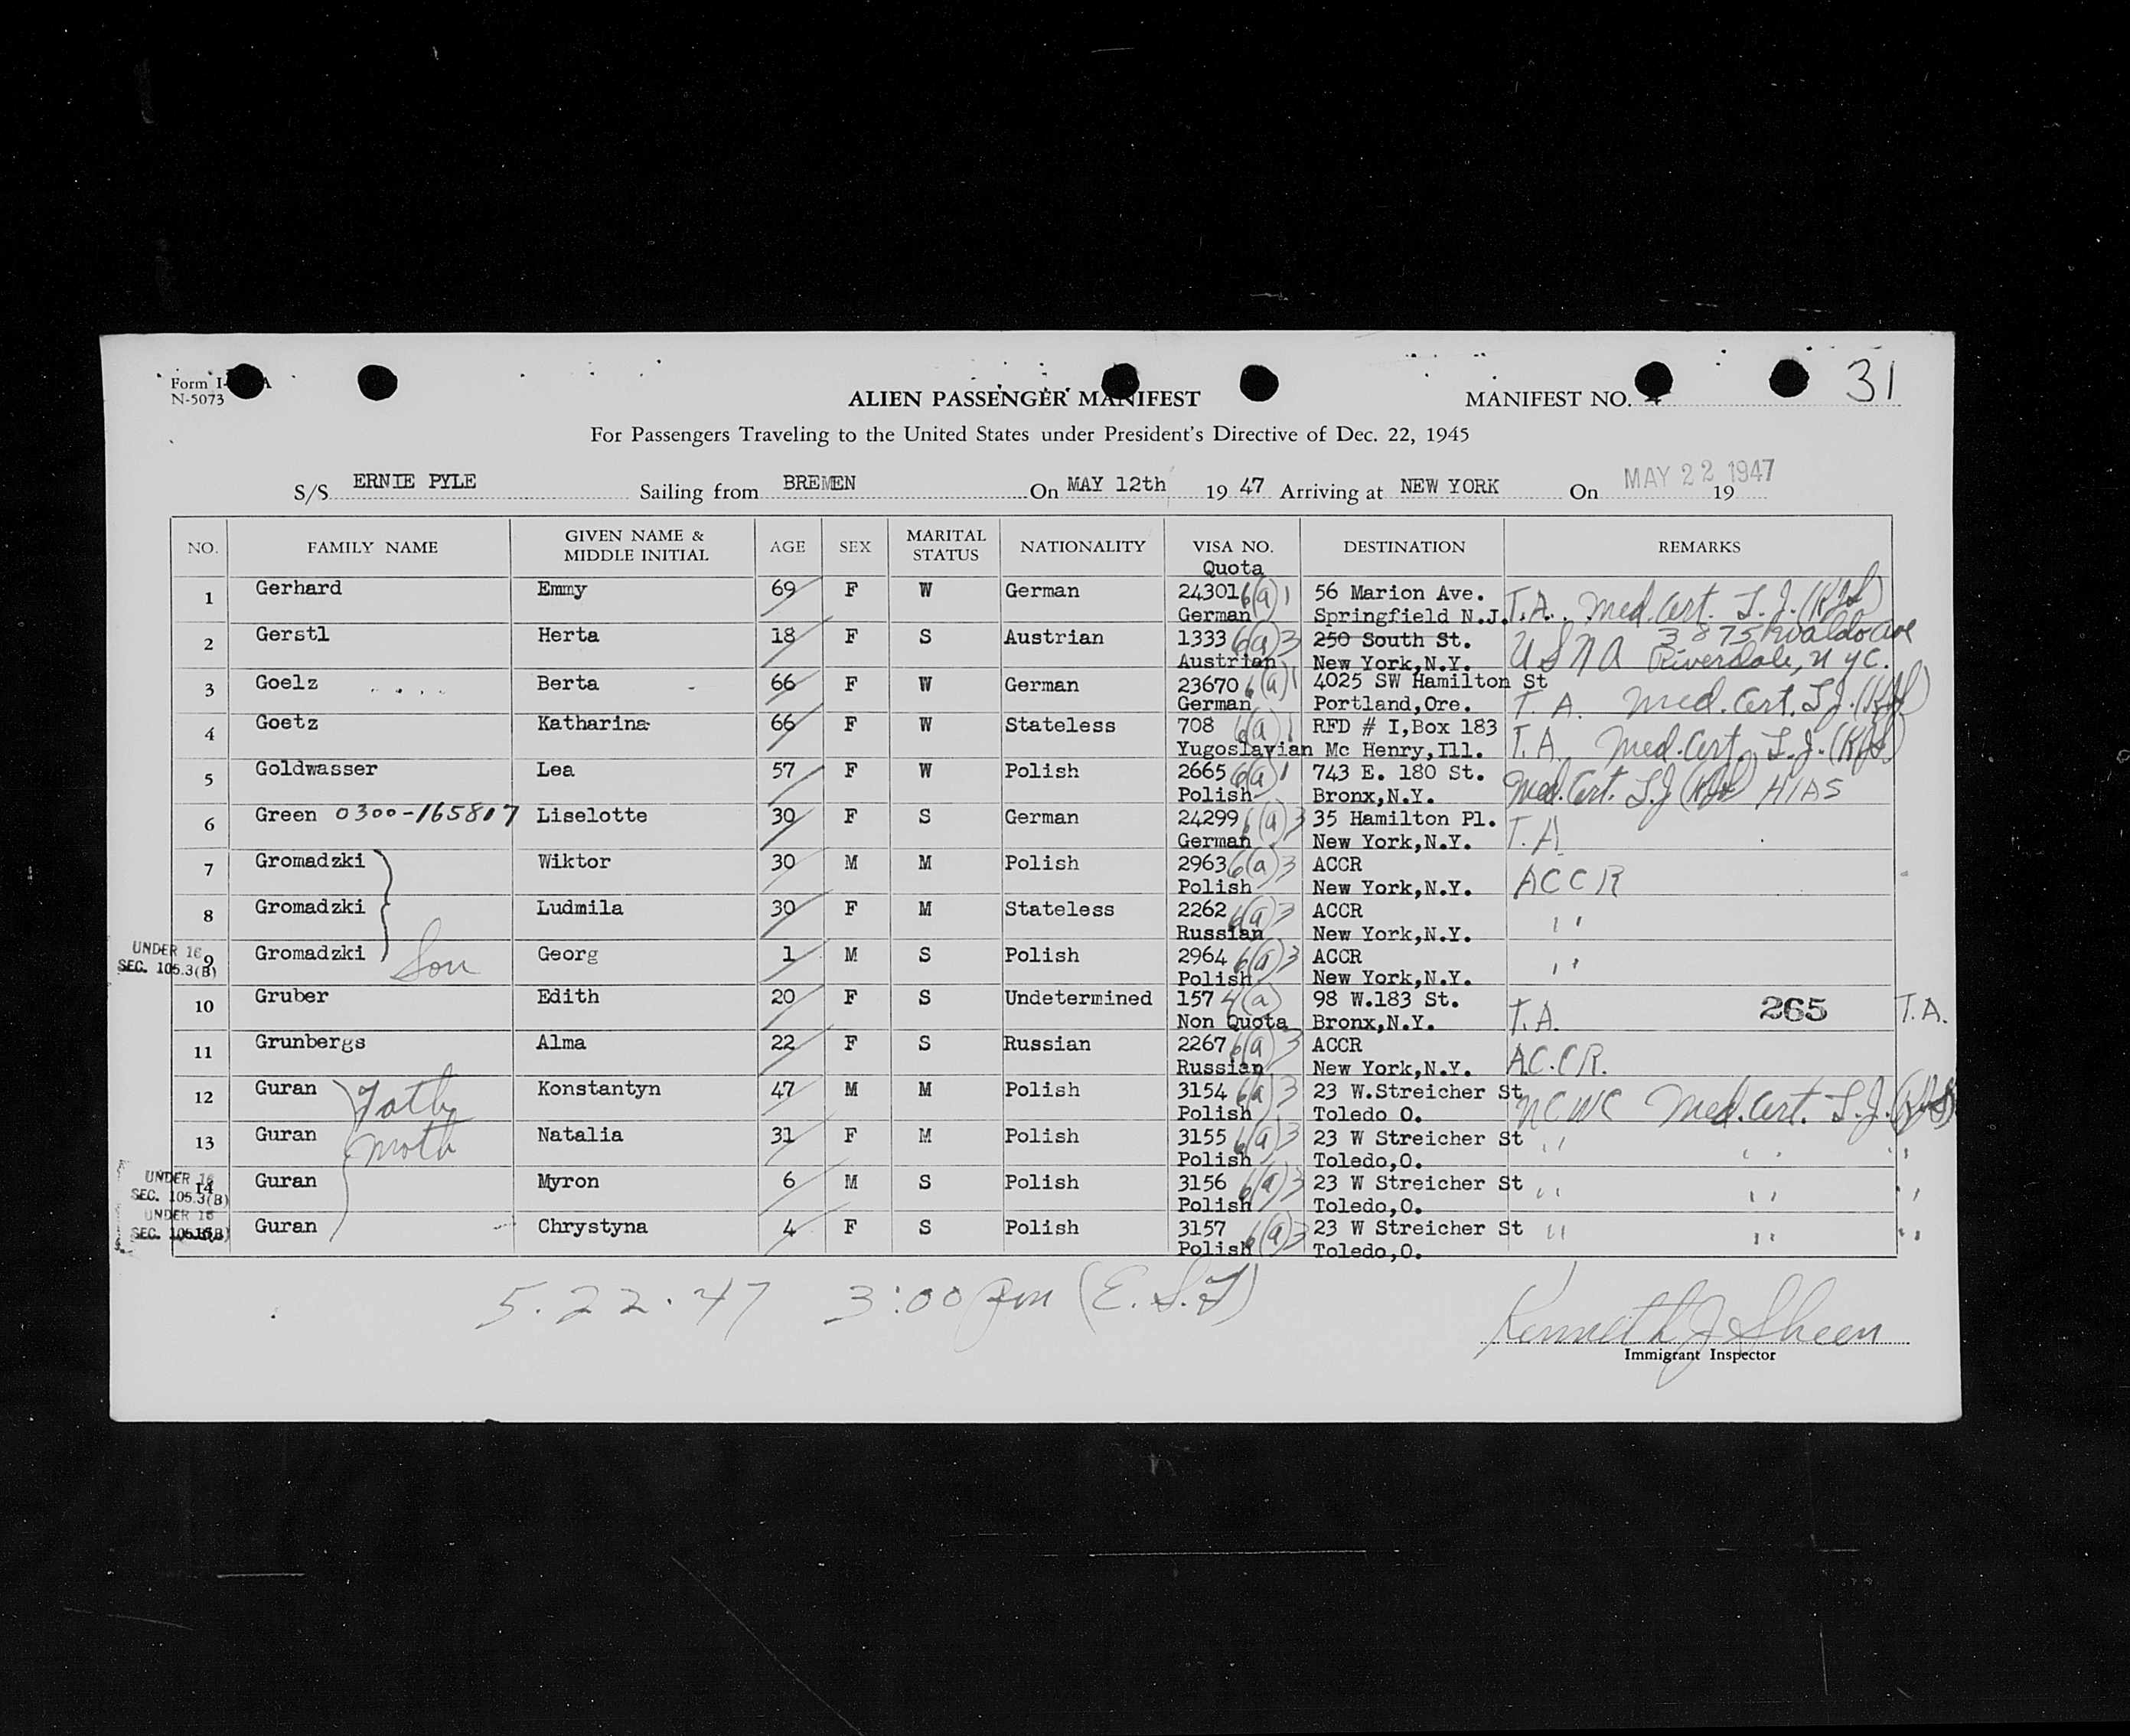 Form I-
N-5073
ALIEN PASSENGER MANIFEST
MANIFEST NO. 31
For Passengers Traveling to the United States under President's Directive of Dec. 22, 1945
S/S ERNIE PYLE Sailing from BREMEN On MAY 12th 19 47 Arriving at NEW YORK On MAY 22 1947 19
NO. FAMILY NAME GIVEN NAME & MIDDLE INITIAL AGE SEX MARITAL STATUS NATIONALITY VISA NO. Quota DESTINATION REMARKS
1 Gerhard Emmy 69 F W German 24301 6(a)1 56 Marion Ave. T.A. Med. Cert. L.J.
German Springfield N.J.
2 Gerstl Herta 18 F S Austrian 1333 6(a)3 250 South St. USNA 3875 Waldo Ave
Austrian New York,N.Y. Riverdale, NYC.
3 Goelz Berta 66 F W German 23670 6(a)1 4025 SW Hamilton St
German Portland,Ore. T.A. Med. Cert. L.J.
4 Goetz Katharina 66 F W Stateless 708 6(a)1 RFD # I,Box 183
Yugoslavian Mc Henry,Ill. T.A. Med. Cert. L.J.
5 Goldwasser Lea 57 F W Polish 2665 6(a)1 743 E. 180 St.
Polish Bronx,N.Y. Med. Cert. L.J. HIAS
6 Green 0300-165817 Liselotte 30 F S German 24299 6(a)3 35 Hamilton Pl.
German New York,N.Y. T.A.
7 Gromadzki Wiktor 30 M M Polish 2963 6(a)3 ACCR
Polish New York,N.Y. ACCR
8 Gromadzki Ludmila 30 F M Stateless 2262 6(a)3 ACCR
Russian New York,N.Y. " 
UNDER 16
SEC. 105.3(B)
9 Gromadzki Son Georg 1 M S Polish 2964 6(a)3 ACCR
Polish New York,N.Y. "
10 Gruber Edith 20 F S Undetermined 157 4(a) 98 W.183 St.
Non Quota Bronx,N.Y. T.A. 265 T.A.
11 Grunbergs Alma 22 F S Russian 2267 6(a)3 ACCR
Russian New York,N.Y. A.C.C.R.
12 Guran Fath Konstantyn 47 M M Polish 3154 6(a)3 23 W.Streicher St
Polish Toledo O. NCWC Med. Cert. L.J.
13 Guran Moth Natalia 31 F M Polish 3155 6(a)3 23 W Streicher St
Polish Toledo,O. " " "
UNDER 16
SEC. 105.3(B)
14 Guran Myron 6 M S Polish 3156 6(a)3 23 W Streicher St
Polish Toledo,O. " " "
UNDER 16
SEC. 105.3(B)
15 Guran Chrystyna 4 F S Polish 3157 6(a)3 23 W Streicher St " " "
Polish Toledo,O.
5.22.47 3:00 pm (E.S.T)
Kenneth J Sheen
Immigrant Inspector